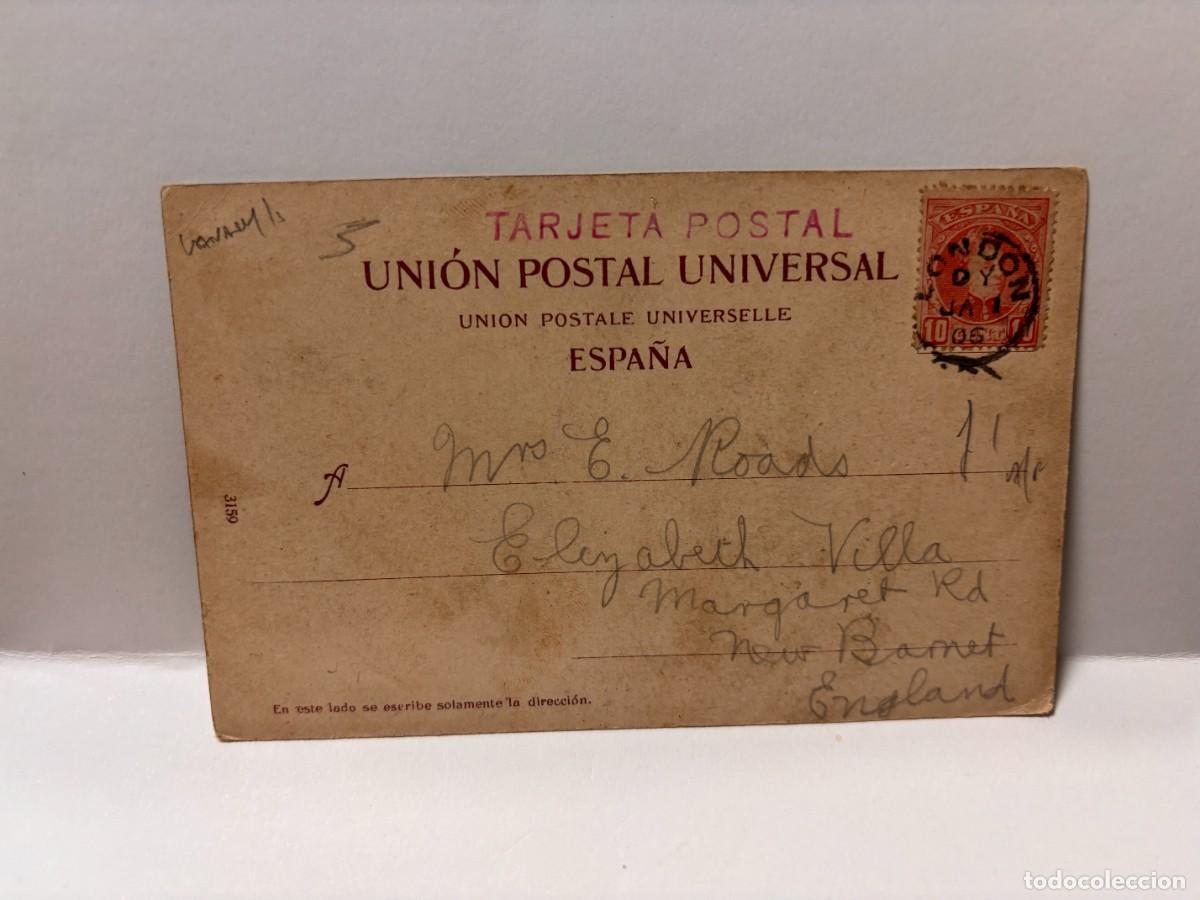 5
TARJETA POSTAL
UNIÓN POSTAL UNIVERSAL
UNION POSTALE UNIVERSELLE
ESPAÑA
ESPAÑA
LONDON
DY
JA 1
06
10 10
A Mrs E. Roads
Elizabeth Villa
Margaret Rd
New Barnet
England
3159
En este lado se escribe solamente la dirección.
todocoleccion